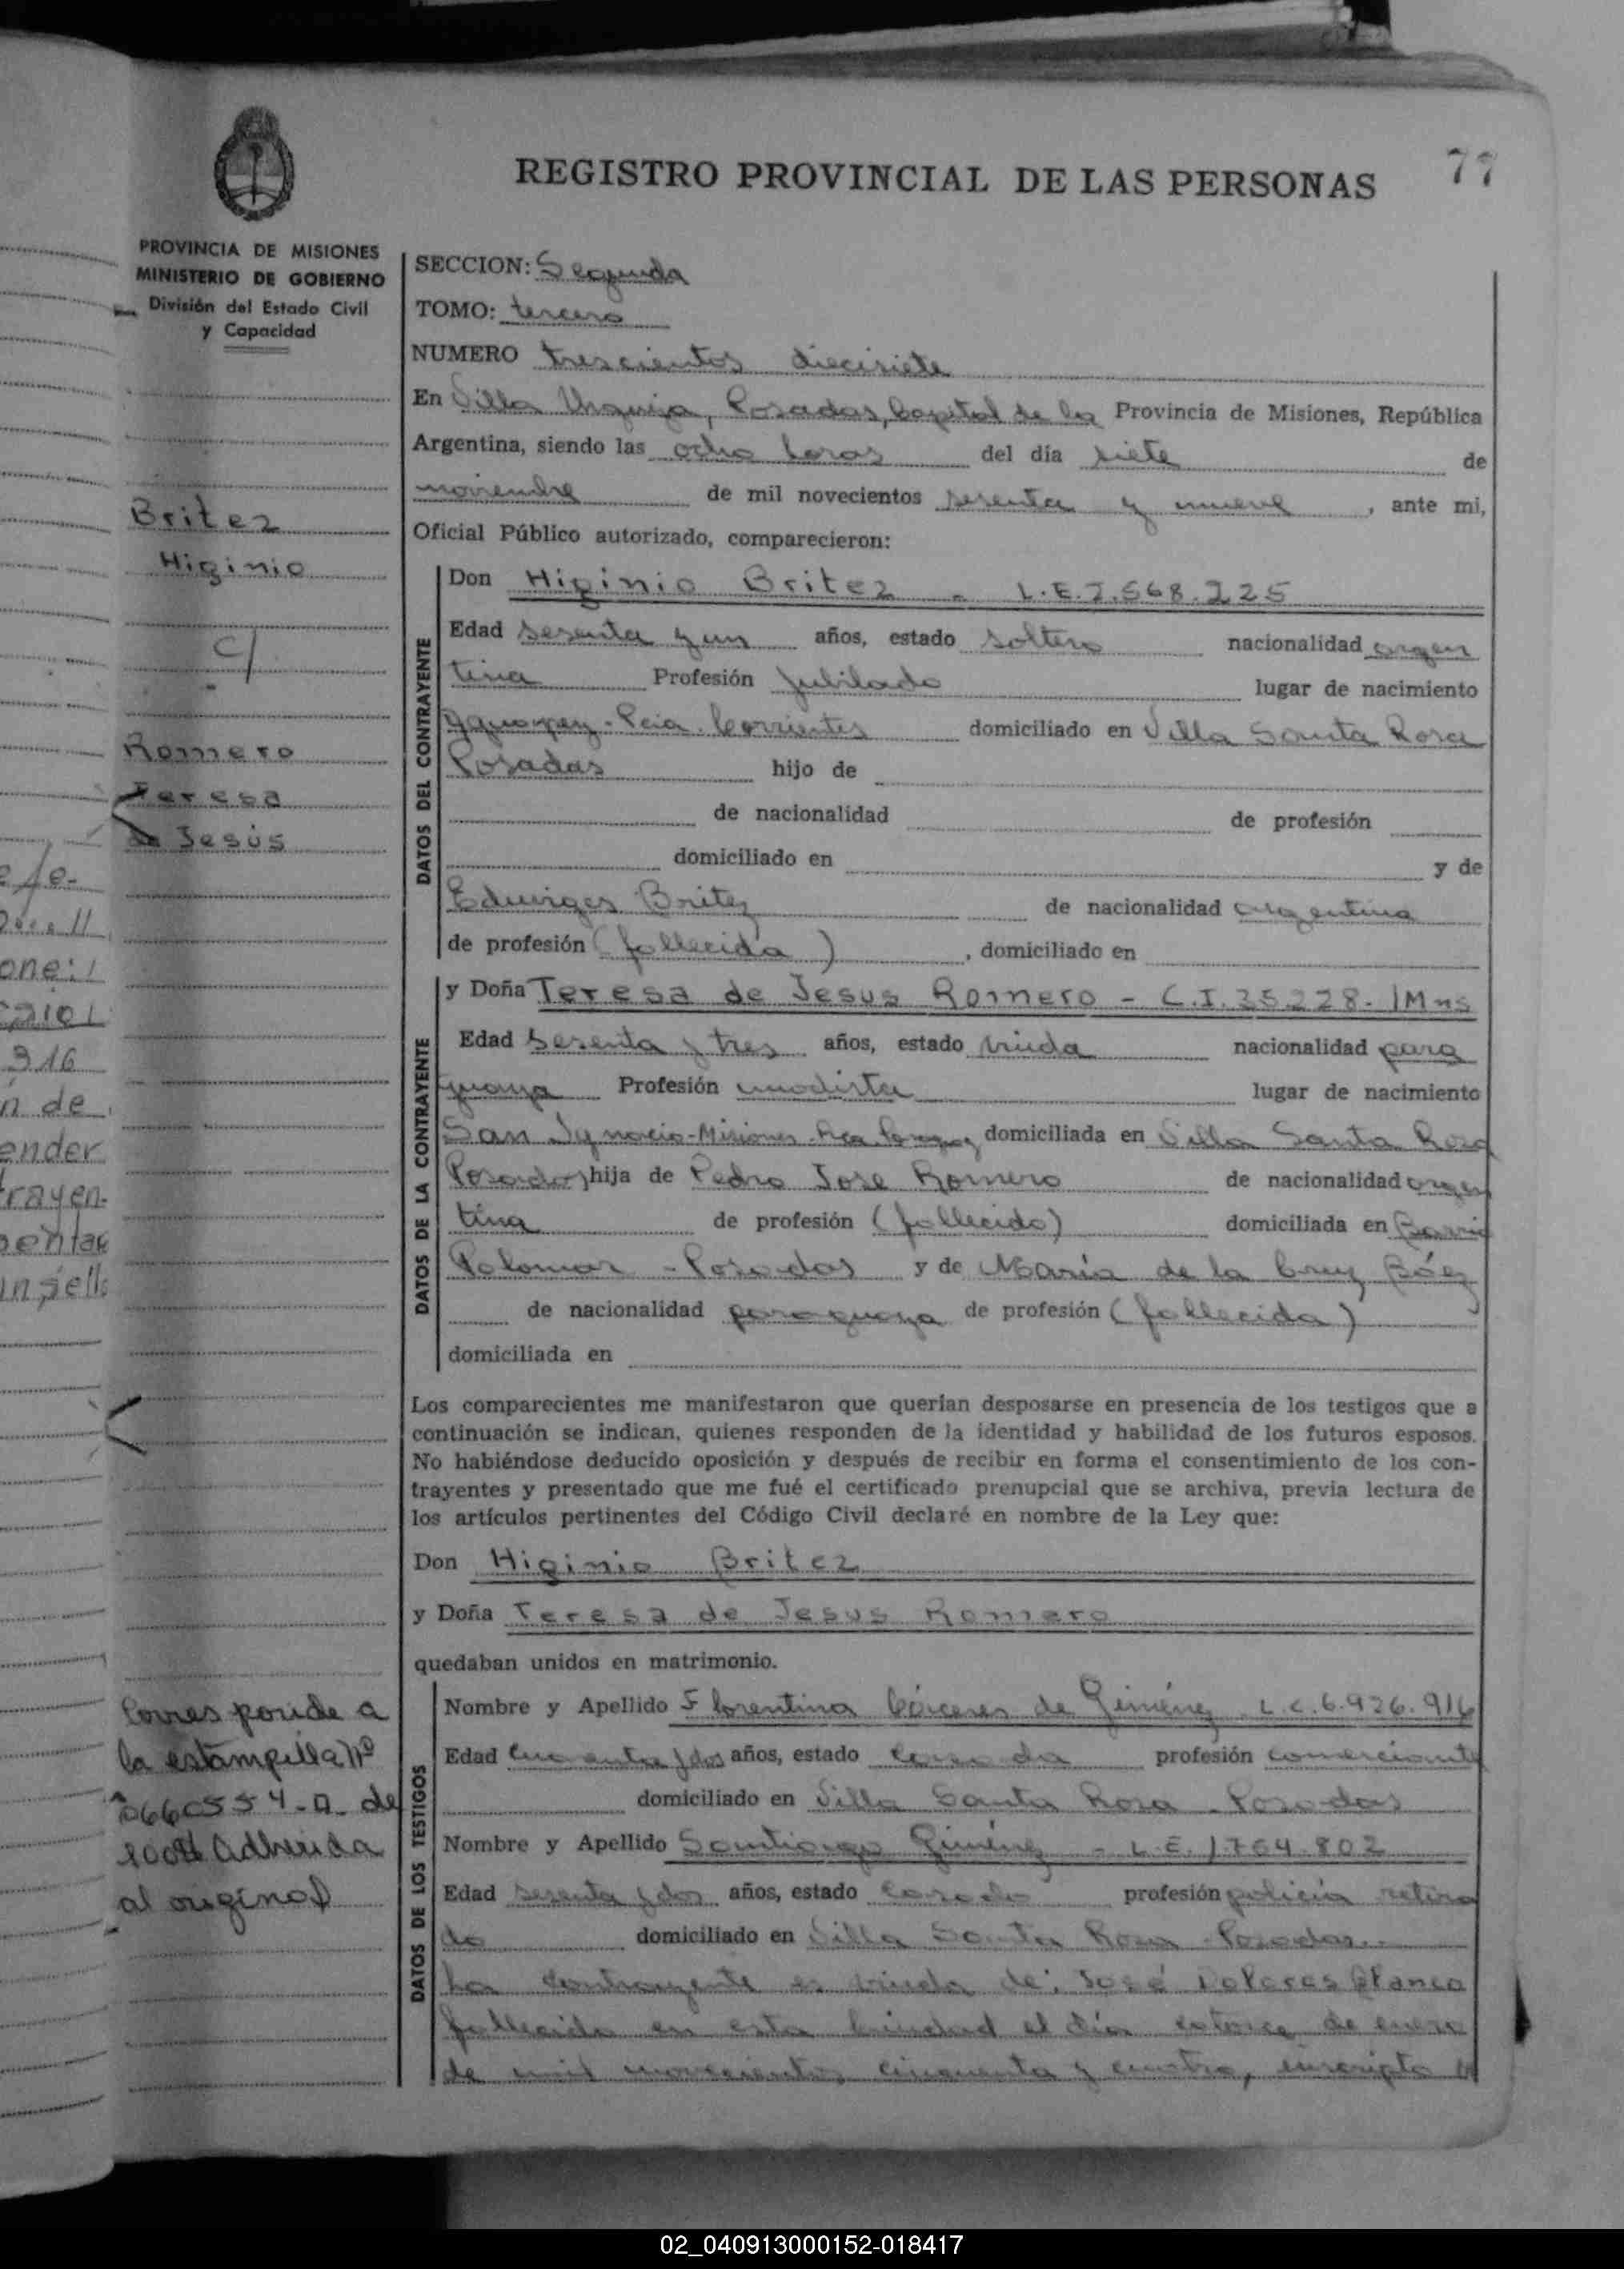 77
REGISTRO PROVINCIAL DE LAS PERSONAS
PROVINCIA DE MISIONES
MINISTERIO DE GOBIERNO
División del Estado Civil
y Capacidad
Britez
Higinio
c/
Romero
Teresa
de Jesús
Corresponde a
la estampilla Nº
al original
one:
316
n de
ender
rayen-
SECCION: Segunda
TOMO: tercero
NUMERO trescientos diecisiete
En Villa Urquiza, Posadas, Capital de la Provincia de Misiones, República
Argentina, siendo las ocho horas del día siete de
noviembre de mil novecientos sesenta y nueve, ante mi,
Oficial Público autorizado, comparecieron:
DATOS DEL CONTRAYENTE
Don Higinio Britez - L.E.
Edad sesenta y un años, estado soltero nacionalidad argen
tina Profesión Jubilado lugar de nacimiento
Pcia. Corrientes domiciliado en Villa Santa Rosa
Posadas hijo de
de nacionalidad de profesión
domiciliado en y de
Eduviges Britez de nacionalidad argentina
de profesión (fallecida), domiciliado en
DATOS DE LA CONTRAYENTE
y Doña Teresa de Jesus Romero - C.I. 35.228. Mns
Edad sesenta y tres años, estado viuda nacionalidad para
guaya Profesión modista lugar de nacimiento
San Ignacio-Misiones- domiciliada en Villa Santa Rosa
Posadas hija de Pedro Jose Romero de nacionalidad argen
tina de profesión (fallecido) domiciliada en Barrio
Palomar - Posadas y de María de la Cruz Báez
de nacionalidad paraguaya de profesión (fallecida)
domiciliada en
Los comparecientes me manifestaron que querían desposarse en presencia de los testigos que a
continuación se indican, quienes responden de la identidad y habilidad de los futuros esposos.
No habiéndose deducido oposición y después de recibir en forma el consentimiento de los con-
trayentes y presentado que me fué el certificado prenupcial que se archiva, previa lectura de
los artículos pertinentes del Código Civil declaré en nombre de la Ley que:
Don Higinio Britez
y Doña Teresa de Jesus Romero
quedaban unidos en matrimonio.
DATOS DE LOS TESTIGOS
Nombre y Apellido Florentina Cáceres de Giménez L.C. 6.926.916
Edad cuarenta y dos años, estado casada profesión comerciante
domiciliado en Villa Santa Rosa - Posadas
Nombre y Apellido Santiago Giménez - L.E. 1.764.802
Edad sesenta y dos años, estado casado profesión policia retira
do domiciliado en Villa Santa Rosa - Posadas.
La contrayente es viuda de: José Dolores Blanco
fallecido en esta Ciudad el día catorce de enero
de mil novecientos cincuenta y cuatro, inscripto
02_040913000152-018417